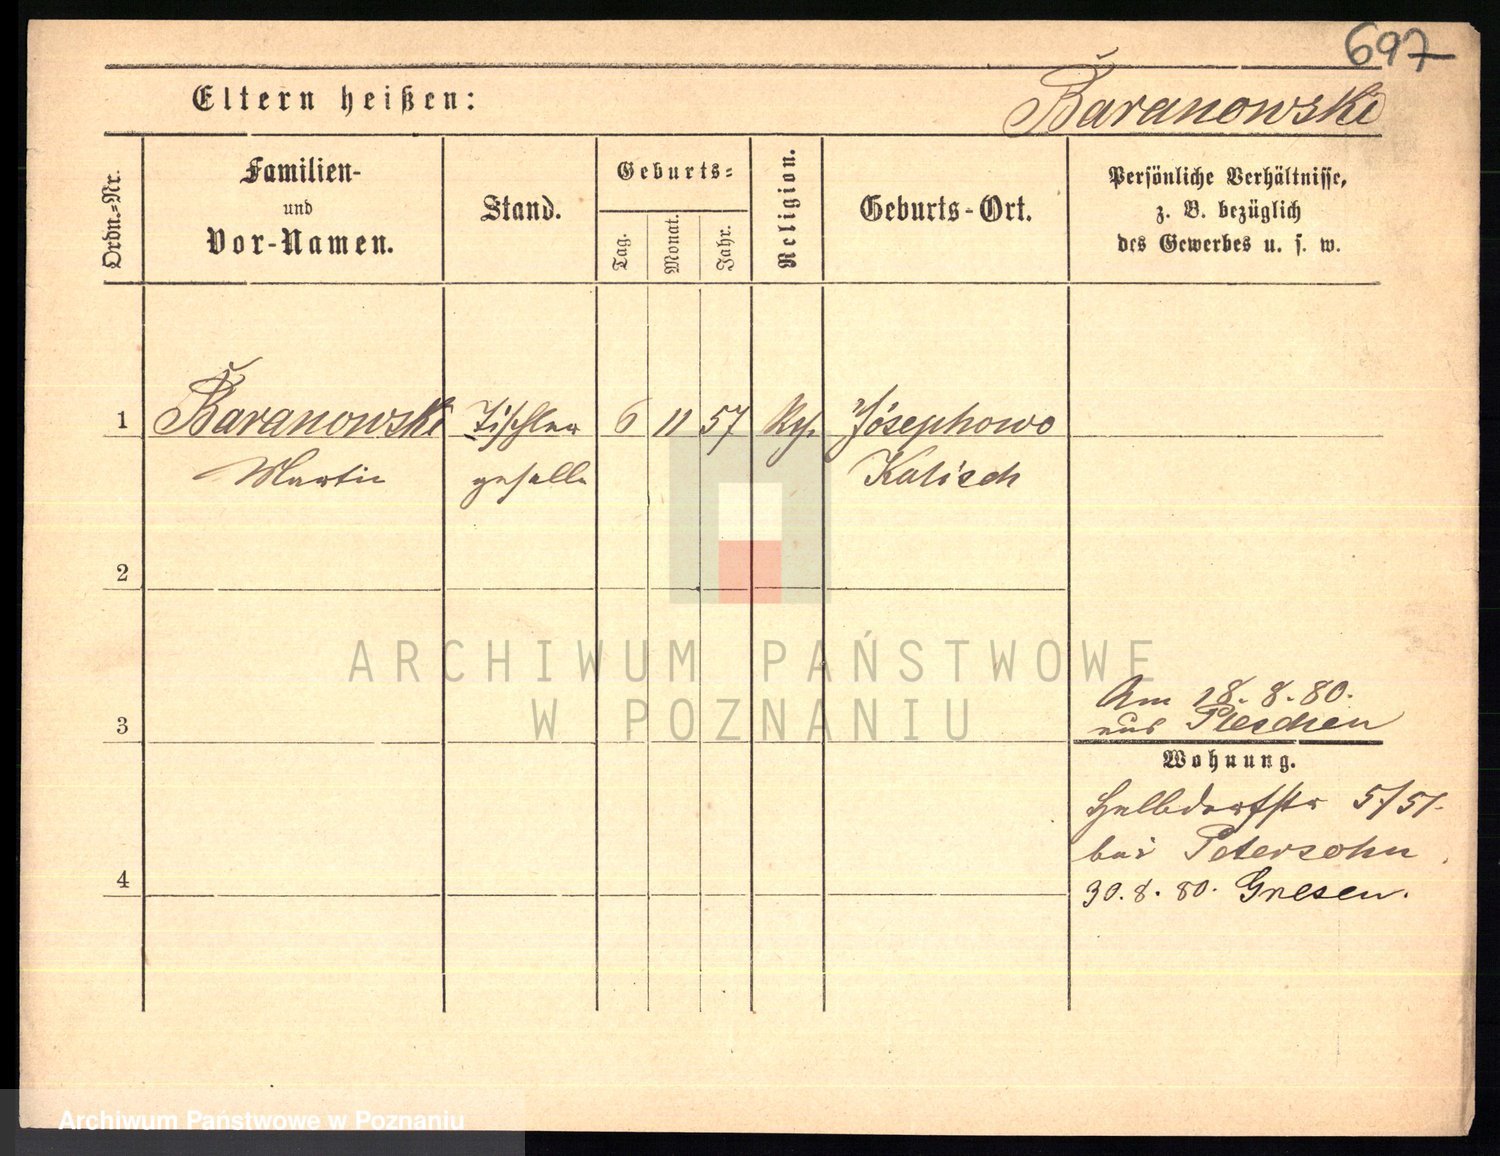 697
Eltern heißen:
Baranowski
Ordn.-Nr.
Familien-
und
Vor-Namen.
Stand.
Geburts-
Tag.
Monat.
Jahr.
Religion.
Geburts-Ort.
Persönliche Verhältnisse,
z. B. bezüglich
des Gewerbes u. s. w.
1 Baranowski Tischler 6 11 57 Josephowo
Martin geselle Kalisch
2
ARCHIWUM PAŃSTWOWE
W POZNANIU
Am 18. 8. 80.
aus Pleschen
3
Wohnung.
Halbdorfstr
bei Petersohn
4
30. 8. 80. Gnesen.
Archiwum Państwowe w Poznaniu